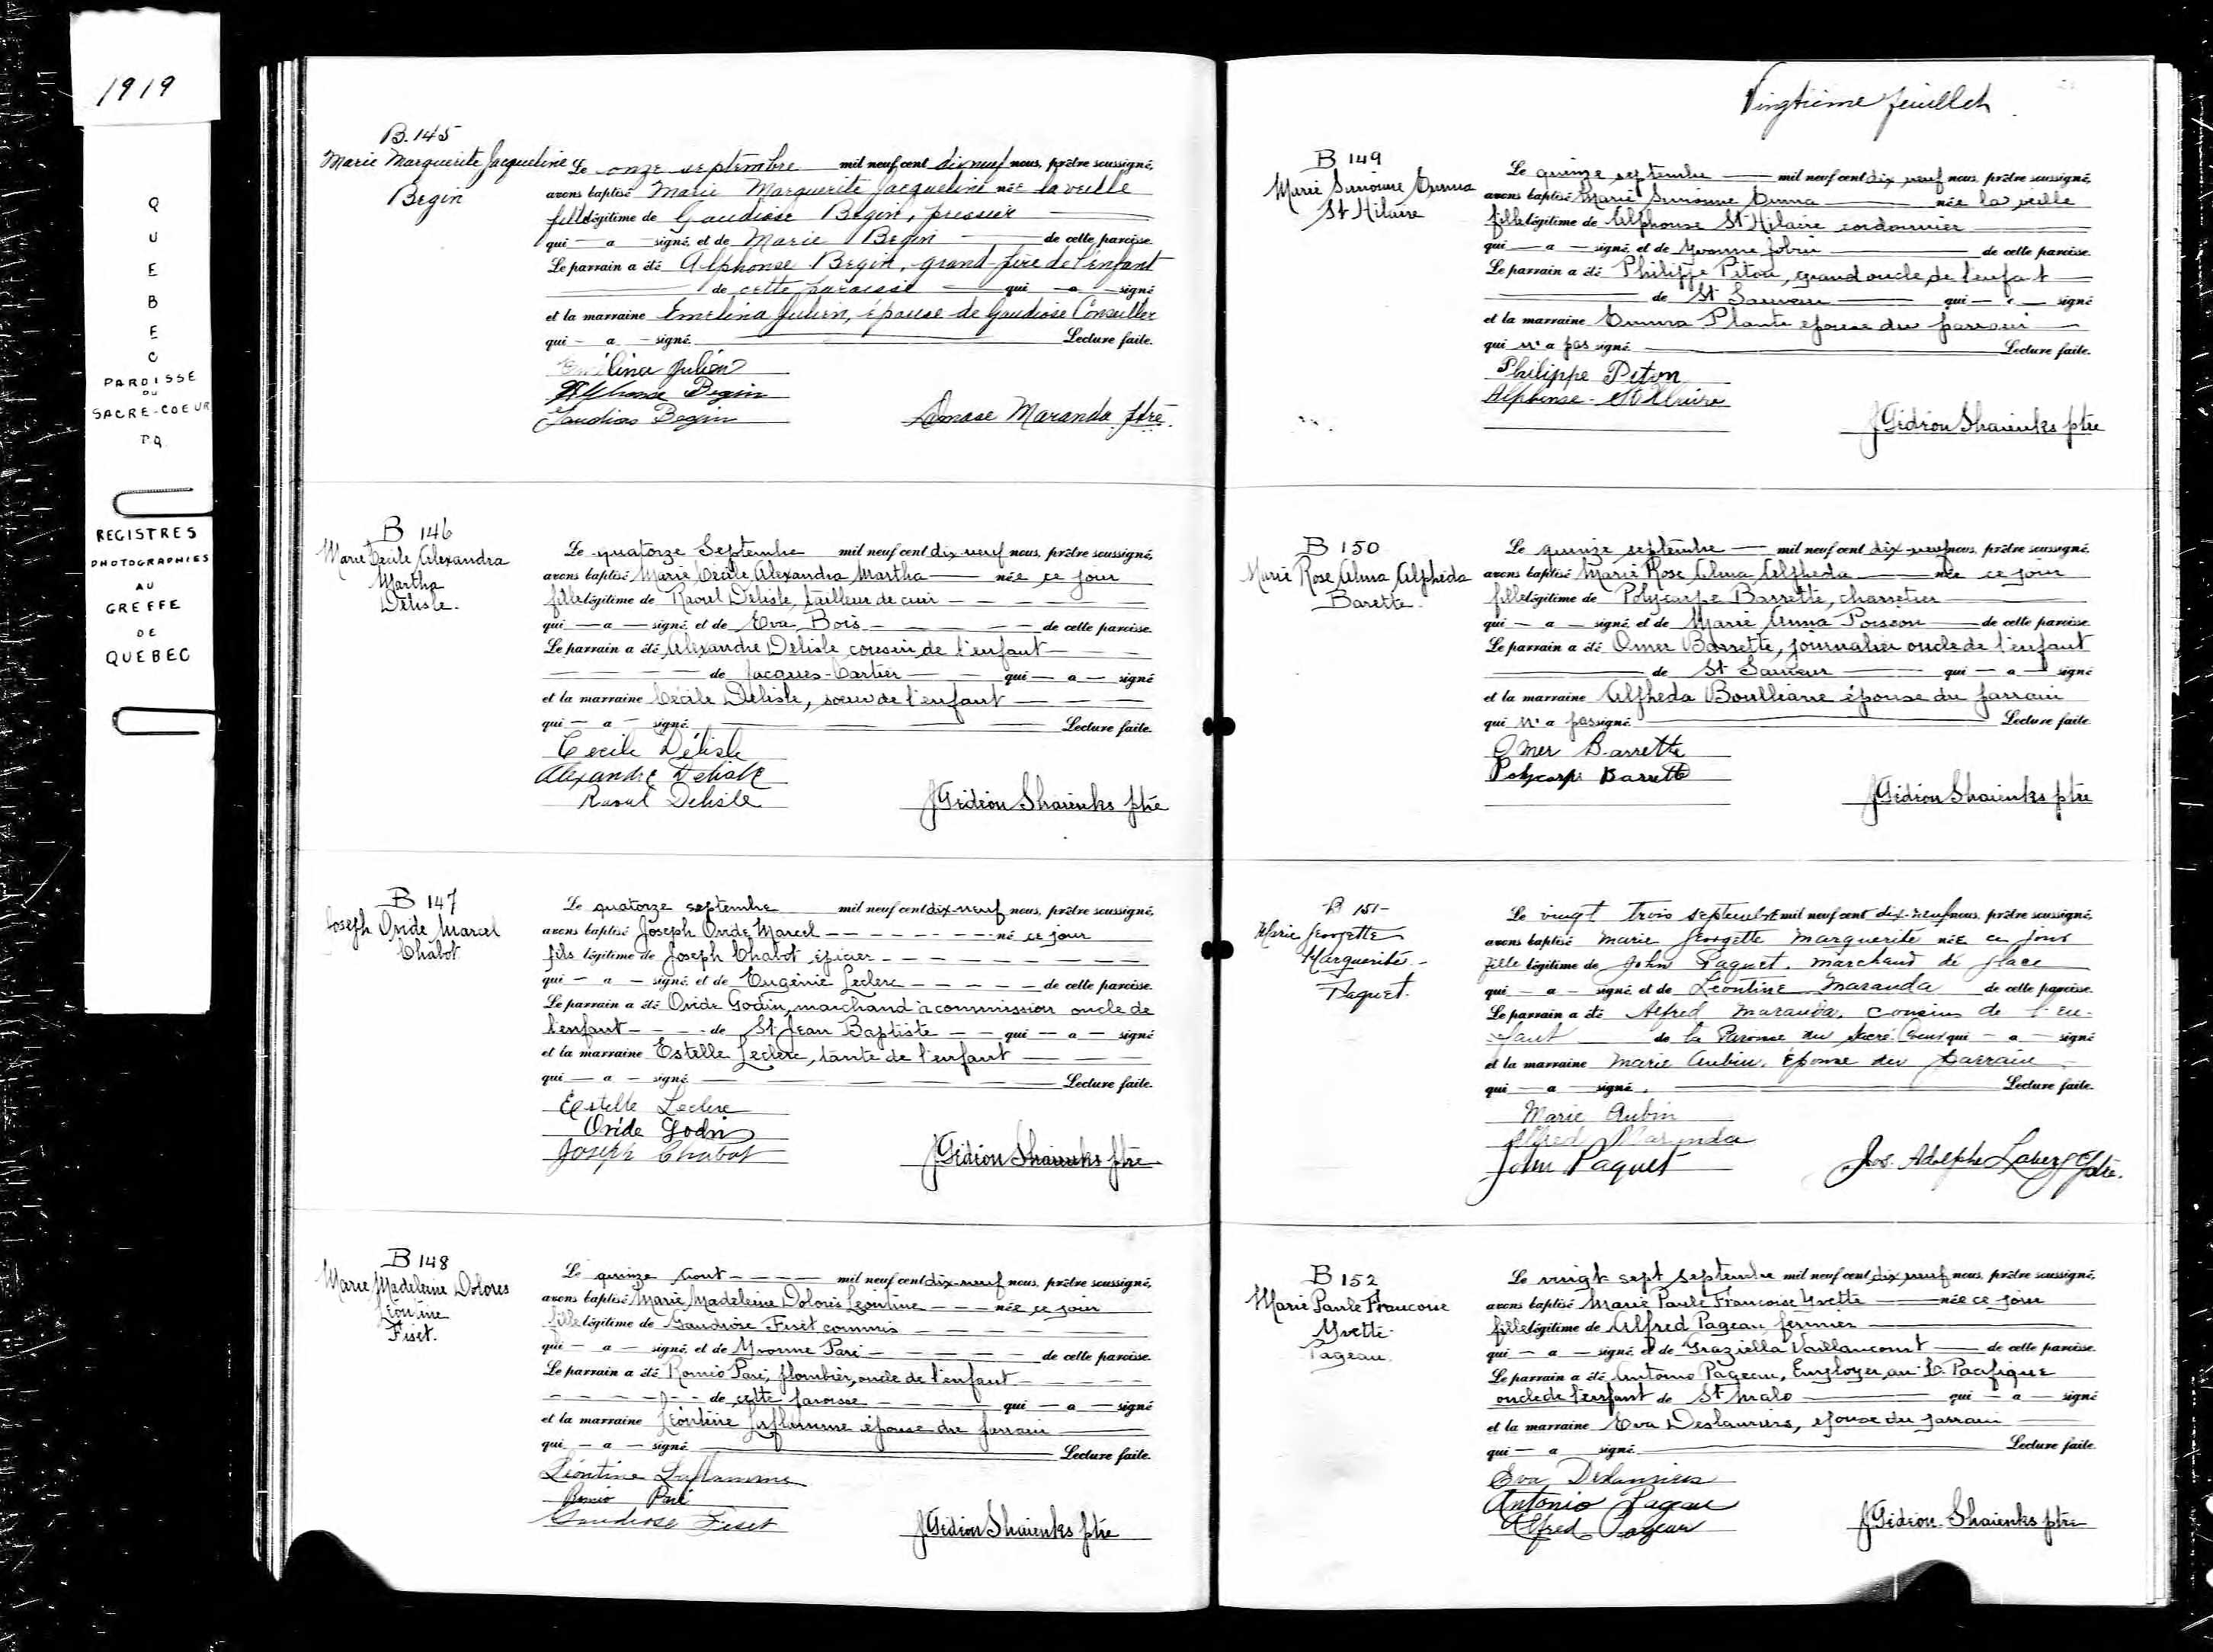 1919
QUEBEC
PAROISSE
DU
SACRE-COEUR
P.Q
REGISTRES
PHOTOGRAPHIES
AU
GREFFE
DE
QUEBEC
B.145
Marie Marguerite Jacqueline
Begin
Le onze septembre mil neuf cent dix neuf nous, prêtre soussigné,
avons baptisé Marie Marguerite Jacqueline née la veille
fille légitime de Gaudiose Begin, pressier
qui — a — signé, et de Marie Begin de cette paroisse.
Le parrain a été Alphonse Begin, grand-père de l'enfant
de cette paroisse qui — a — signé
et la marraine Emelina Julien, épouse de Gaudiose Consiller
qui — a — signé. Lecture faite.
Emélina Julien
Alphonse Begin
Gaudias Begin
Amase Maranda ptre.
B 146
Marie Cécile Alexandra
Martha
Delisle.
Le quatorze Septembre mil neuf cent dix neuf nous, prêtre soussigné,
avons baptisé Marie Cécile Alexandra Martha née ce jour
fille légitime de Raoul Delisle, tailleur de cuir
qui — a — signé, et de Eva Bois de cette paroisse.
Le parrain a été Alexandre Delisle cousin de l'enfant
de Jacques-Cartier qui — a — signé
et la marraine Cécile Delisle, sœur de l'enfant
qui — a — signé. Lecture faite.
Cecile Délisle
Alexandre Delisle
Raoul Delisle
J Gédéon Shaienks ptre
B 147
Joseph Ovide Marcel
Chabot
Le quatorze septembre mil neuf cent dix-neuf nous, prêtre soussigné,
avons baptisé Joseph Ovide Marcel né ce jour
fils légitime de Joseph Chabot épicier
qui — a — signé, et de Eugénie Leclerc de cette paroisse.
Le parrain a été Ovide Godin, marchand à commission oncle de
l'enfant de St Jean Baptiste qui — a — signé
et la marraine Estelle Leclerc, tante de l'enfant
qui — a — signé. Lecture faite.
Estelle Leclerc
Ovide Godin
Joseph Chabot
J Gédéon Shaienks ptre
B 148
Marie Madeleine Dolores
Léontine
Fiset.
Le quinze Aout mil neuf cent dix-neuf nous, prêtre soussigné,
avons baptisé Marie Madeleine Dolorès Léontine née ce jour
fille légitime de Gaudiose Fiset commis
qui — a — signé, et de Yvonne Paré de cette paroisse.
Le parrain a été Roméo Paré, plombier, oncle de l'enfant
de cette paroisse qui — a — signé
et la marraine Léontine Laflamme épouse du parrain
qui — a — signé. Lecture faite.
Léontine Laflamme
Roméo Paré
Gaudiose Fiset
J Gédéon Shaienks ptre
Vingtième feuillet
B 149
Marie Simonne Emma
St Hilaire
Le quinze septembre mil neuf cent dix neuf nous, prêtre soussigné,
avons baptisé Marie Simonne Emma née la veille
fille légitime de Alphonse St Hilaire cordonnier
qui — a — signé, et de Yvonne Jobin de cette paroisse.
Le parrain a été Philippe Piton, grand oncle de l'enfant
de St Sauveur qui — a — signé
et la marraine Emma Plante épouse du parrain
qui n'a pas signé. Lecture faite.
Philippe Piton
Alphonse St Hilaire
J Gédéon Shaienks ptre
B 150
Marie Rose Alma Alphéda
Barette.
Le quinze septembre mil neuf cent dix-neuf nous, prêtre soussigné,
avons baptisé Marie Rose Alma Alphéda née ce jour
fille légitime de Polycarpe Barrette, charretier
qui — a — signé, et de Marie Anna Poisson de cette paroisse.
Le parrain a été Omer Barrette, journalier oncle de l'enfant
de St Sauveur qui — a — signé
et la marraine Alfheda Boullianne épouse du parrain
qui n'a pas signé. Lecture faite.
Omer Barrette
Polycarpe Barrette
J Gédéon Shaienks ptre
B 151
Marie Georgette
Marguerite
Paquet.
Le vingt trois septembre mil neuf cent dix-neuf nous, prêtre soussigné,
avons baptisé Marie Georgette Marguerite née ce jour
fille légitime de John Paquet, marchand de glace
qui — a — signé, et de Léontine Maranda de cette paroisse.
Le parrain a été Alfred Maranda, cousin de l'en-
fant de la Paroisse du Sacré Coeur qui — a — signé
et la marraine Marie Aubin, épouse du parrain
qui — a — signé. Lecture faite.
Marie Aubin
Alfred Maranda
John Paquet
Jos. Adolphe Laberge Ptre.
B 152
Marie Paule Francoise
Yvette
Pageau.
Le vingt sept septembre mil neuf cent dix neuf nous, prêtre soussigné,
avons baptisé Marie Paule Francoise Yvette née ce jour
fille légitime de Alfred Pageau fermier
qui — a — signé, et de Graziella Vaillancourt de cette paroisse.
Le parrain a été Antonio Pageau, Employer au C. Pacifique
oncle de l'enfant de St Malo qui — a — signé
et la marraine Eva Deslauriers, épouse du parrain
qui — a signé. Lecture faite.
Eva Deslauriers
Antonio Pageau
Alfred Pageau
J Gédéon Shaienks ptre